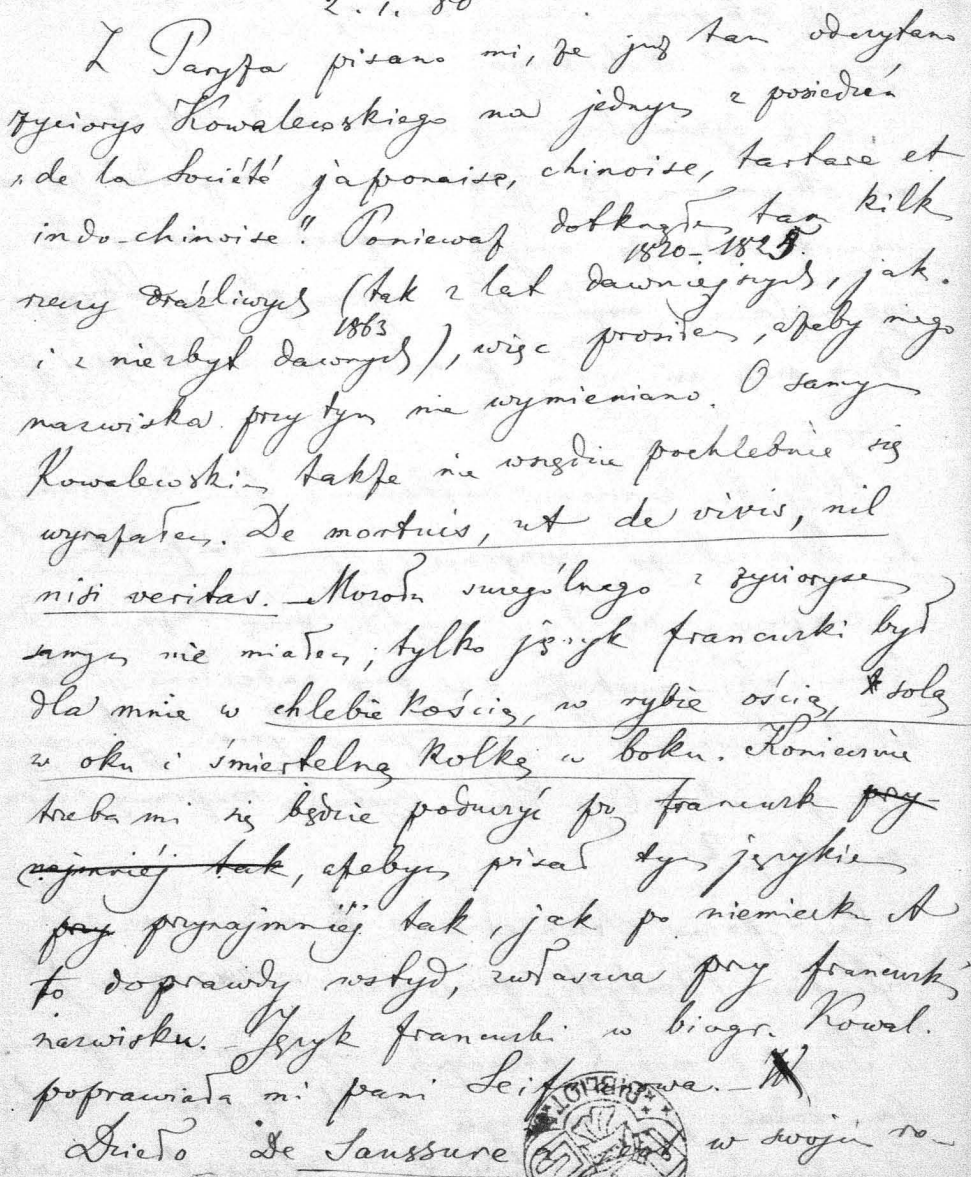 2. 1. 80
Z Paryża pisano mi, że już tam odczytano
życiorys Kowalewskiego na jednym z posiedzeń
„de la Société japonaise, chinoise, tartare et
indo-chinoise". Ponieważ dotknąłem tam kilk
1820–1825.
rzeczy drażliwych (tak z lat dawniejszych, jak
1863
i z niezbyt dawnych), więc prosiłem, ażeby mego
nazwiska przytym nie wymieniano. O samym
Kowalewskim także nie wszędzie pochlebnie się
wyrażałem. De mortuis, ut de vivis, nil
nisi veritas. – Mozołu szczególnego z życiorysem
samym nie miałem; tylko język francuski był
dla mnie w chlebie kością, w rybie ością, solą
w oku i śmiertelną kolką w boku. Koniecznie
trzeba mi się będzie poduczyć po francusk przy
najmniéj tak, ażebym pisał tym językiem
przy przynajmniéj tak, jak po niemiecku. A
to doprawdy wstyd, zwłaszcza przy francusk
nazwisku. – Język francuski w biogr. Kowal.
poprawiała mi pani –
Dzieło De Saussure w swoim ro-